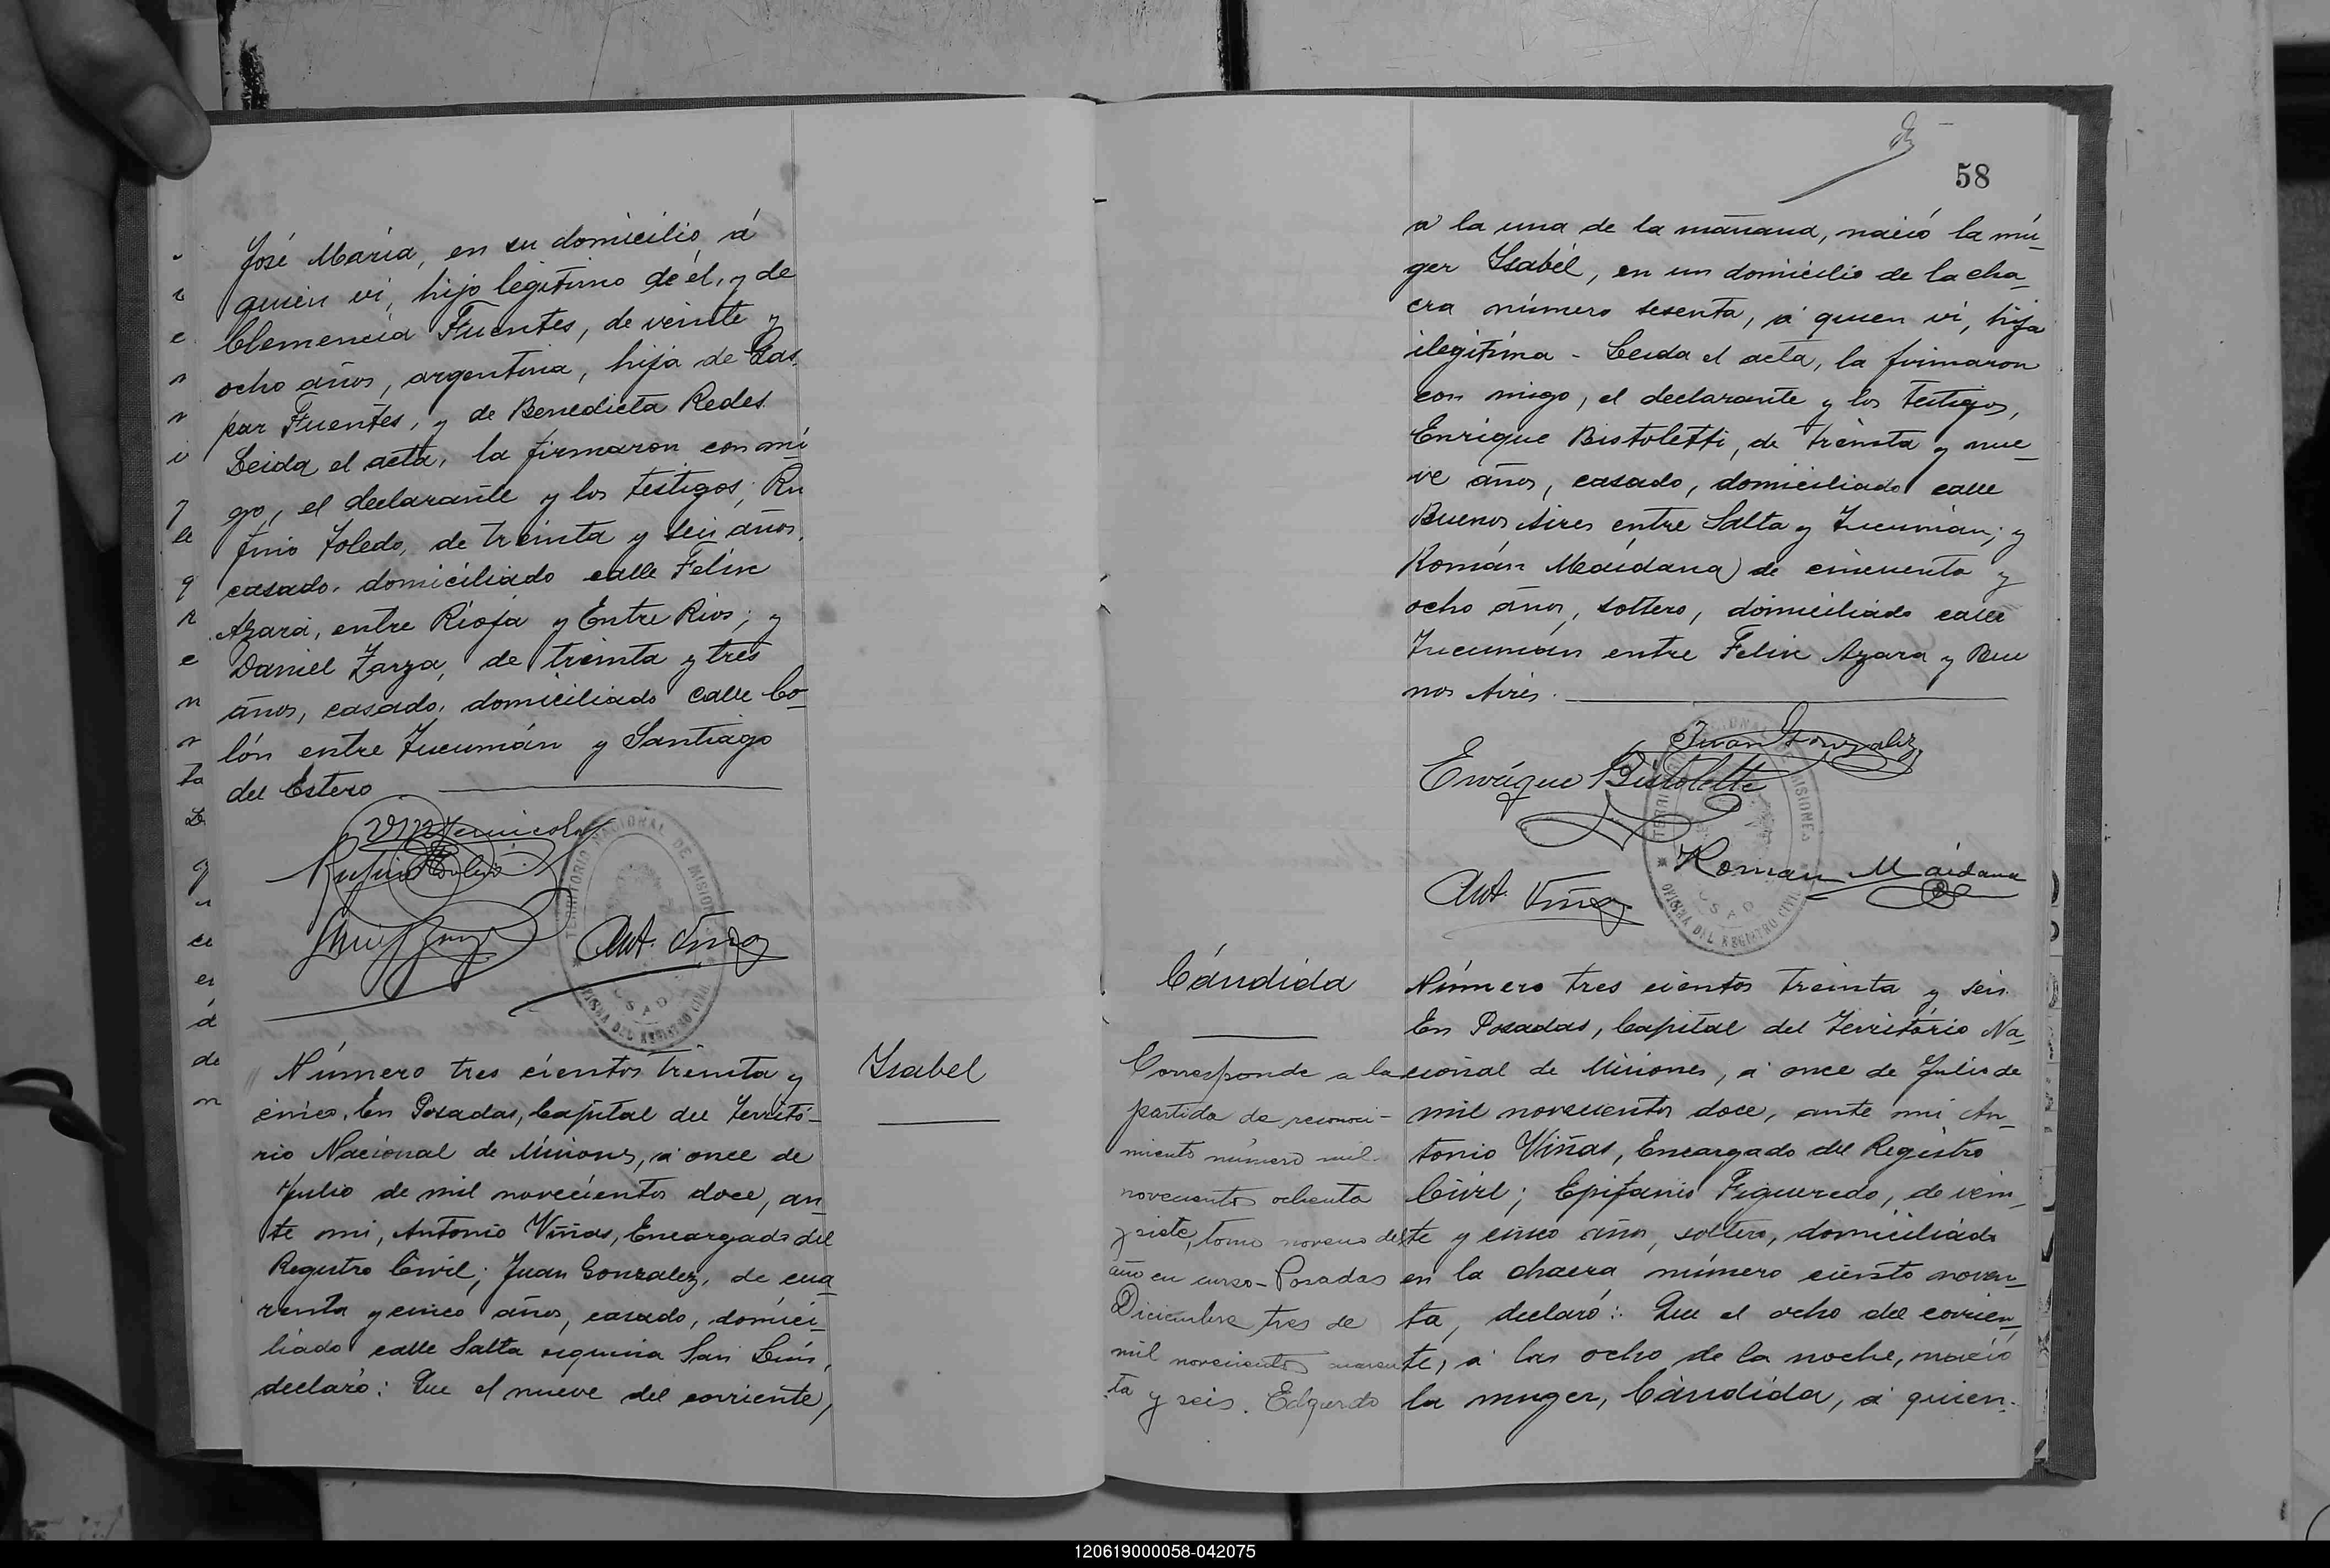 José María, en su domicilio á
quien ví, hijo legítimo de él, y de
Clemencia Fuentes, de veinte y
ocho años, argentina, hija de Gas
par Fuentes, y de Benedicta Redes.
Leida el acta, la firmaron con mi
go, el declarante y los testigos, Ru
fino Toledo, de treinta y seis años,
casado, domiciliado calle Felix
Azara, entre Rioja y Entre Rios; y
Daniel Zarza, de treinta y tres
años, casado, domiciliado calle Co-
lón entre Tucumán y Santiago
del Estero
Rufino Toledo
Ant. Viñas
TERRITORIO NACIONAL DE MISIONES
OFICINA DEL REGISTRO CIVIL
POSADAS
Número tres cientos treinta y
cinco. En Posadas, Capital del Territó-
rio Nacional de Misiones, á once de
Julio de mil novecientos doce, an
te mi, Antonio Viñas, Encargado del
Registro Civil; Juan Gonzalez, de cua
renta y cinco años, casado, domici-
liado calle Salta esquina San Luis,
declaró: Que el nueve del corriente,
Isabel
58
á la una de la mañana, nació la mu-
ger Isabél, en un domicilio de la cha-
cra número sesenta, á quien ví, hija
ilegítima - Leida el acta, la firmaron
con migo, el declarante y los testigos,
Enrique Bistoletti, de treinta y nue-
ve años, casado, domiciliado calle
Buenos Aires entre Salta y Tucumán; y
Román Maidana) de cincuenta y
ocho años, soltero, domiciliado calle
Tucumán entre Felix Azara y Bue
nos Aires.
Juan Gonzalez
Enrique Bistoletti
Roman Maidana
Ant. Viñas
TERRITORIO NACIONAL DE MISIONES
OFICINA DEL REGISTRO CIVIL
POSADAS
Cándida
Corresponde a la
partida de reconoci-
miento número mil
novecientos ochenta
y siete, tomo noveno del
año en curso - Posadas
Diciembre tres de
mil novecientos cuaren
ta y seis. Edgardo
Número tres cientos treinta y seis.
En Posadas, Capital del Territorio Na-
cional de Misiones, á once de Julio de
mil novecientos doce, ante mi An-
tonio Viñas, Encargado del Registro
Civil; Epifanio Figueredo, de vein-
te y cinco años, soltero, domiciliado
en la chacra número ciento noven-
ta, declaró: Que el ocho del corrien-
te, á las ocho de la noche, nació
la muger, Cándida, á quien
120619000058-042075